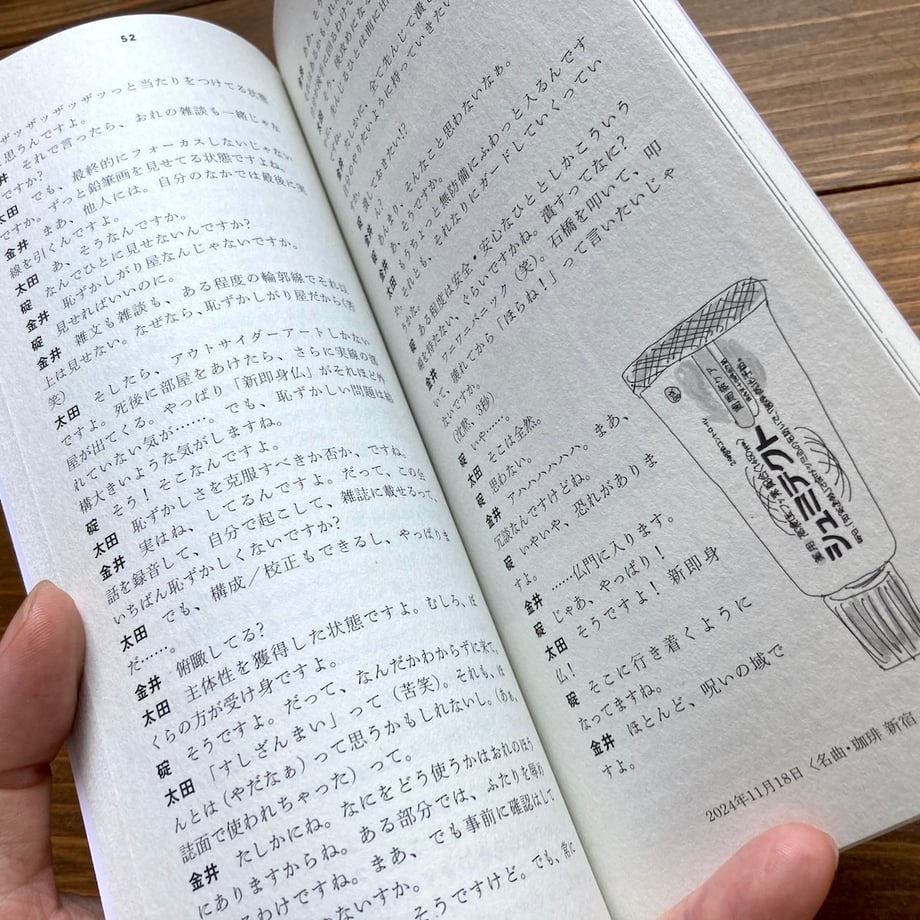 52
ザッザッザッザッっと当たりをつけてる状態
と思うんですよ。
それで言ったら、おれの雑談も一緒じゃな
ですか?
太田 でも、最終的にフォーカスしないじゃない
ですか。ずっと鉛筆画を見せてる状態ですよね。
金井 まあ、他人には。自分のなかでは最後に実
線を引くんですよ。
太田 あ、そうなんですか。
碇 なんでひとに見せないんですか?
金井 恥ずかしがり屋なんじゃないですか。
碇 見せればいいのに。
金井 雑文も雑談も、ある程度の輪郭線でそれ以
上は見せない。なぜなら、恥ずかしがり屋だから(苦
笑)
太田 そしたら、アウトサイダーアートしかない
ですよ。死後に部屋をあけたら、さらに実線の部
屋が出てくる。やっぱり「新即身仏」がそれほど外
れていない気が……。でも、恥ずかしい問題は結
構大きいような気がしますね。
碇 そう!そこなんですよ。
太田 恥ずかしさを克服すべきか否か、ですね。
金井 実はね、してるんですよ。だって、この会
話を録音して、自分で起こして、雑誌に載せるって、
いちばん恥ずかしくないですか?
太田 でも、構成/校正もできるし、やっぱりま
だ……。
金井 俯瞰してる?
太田 主体性を獲得した状態ですよ。むしろ、ぼ
くらの方が受け身ですよ。
碇 そうですよ。だって、なんだかわからずに来て、
太田 「すしざんまい」って(苦笑)。それも、ほ
んとは(やだなぁ)って思うかもしれないし。(あぁ、
誌面で使われちゃった)って。
金井 たしかにね。なにをどう使うかはおれのほう
にありますからね。ある部分では、ふたりを辱め
るわけですね。まあ、でも事前に確認はして
ないですか。
そうですけど。でも、常に
たしかに、全て先んじて
のやりたいように持っていきたい
しておきたい!?
あんまり、そんなこと思わないなぁ。
あ、そうですか。
もうちょっと無防備にふわっと入るんです
か。それとも、それなりにガードしていくってい
うかな。
碇 ある程度は安全・安心なひととしかこういう
場を持たない、ぐらいですかね。潰すってなに?
ワニワニパニック(笑)。石橋を叩いて、叩
いて、壊れてから「ほらね!」って言いたいじゃ
ないですか。
(沈黙、3秒)
碇 いや……。
太田 そこは全然。
碇 思わない。
金井 アハハハハハ。まあ、
冗談なんですけどね。
碇 いやいや、恐れがありま
すよ。
金井 ……仏門に入ります。
碇 じゃあ、やっぱり!
太田 そうですよ!新即身
仏!
碇 そこに行き着くように
なってますね。
金井 ほとんど、呪いの域で
すよ。
シュミテクト
2024年11月18日〈名曲・珈琲 新宿